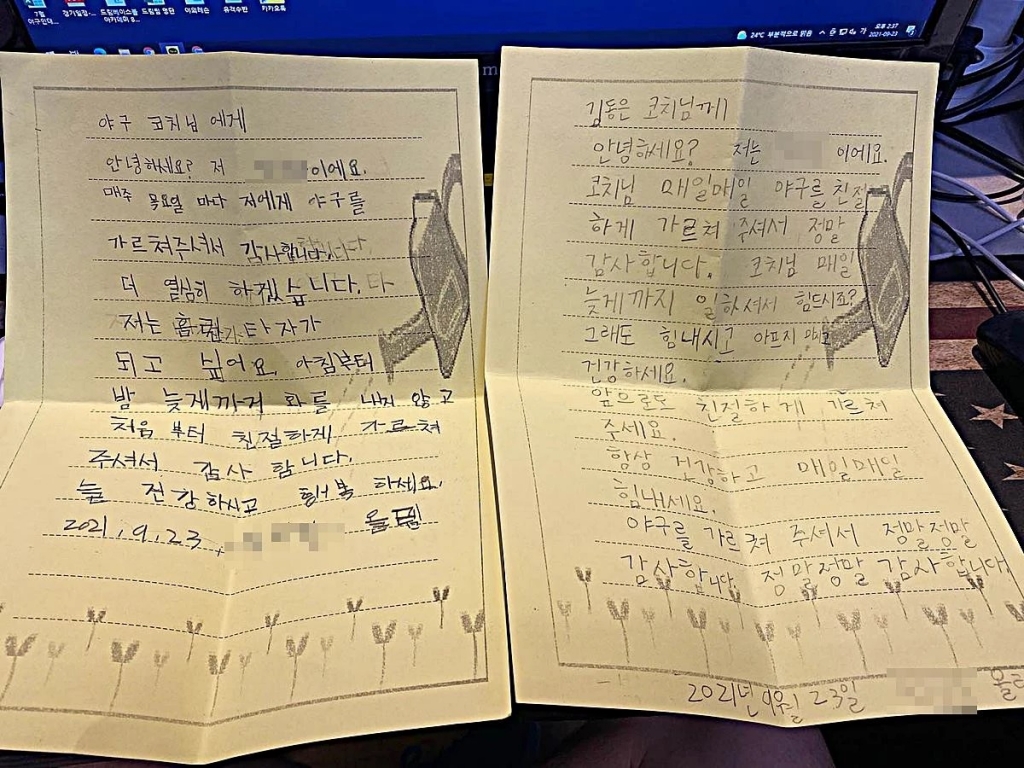 24°C 부분적으로 맑음
오후 2:37
2021-09-23
야구 코치님 에게
안녕하세요? 저 이에요.
매주 목요일 마다 저에게 야구를
가르쳐주셔서 감사합니다.
더 열심히 하겠습니다.
저는 홈런타자가
되고 싶어요. 아침부터
밤 늦게까지 화를 내지 않고
처음 부터 친절하게 가르쳐
주셔서 감사 합니다.
늘 건강하시고 행복 하세요.
2021. 9. 23
올림
김동은 코치님께
안녕하세요? 저는 이에요.
코치님 매일매일 야구를 친절
하게 가르쳐 주셔서 정말
감사합니다. 코치님 매일
늦게까지 일하셔서 힘드시죠?
그래도 힘내시고 아프지 말고
건강하세요.
앞으로도 친절하게 가르쳐
주세요.
항상 건강하고 매일매일
힘내세요.
야구를 가르쳐 주셔서 정말정말
감사합니다. 정말정말 감사합니다.
2021년 9월 23일